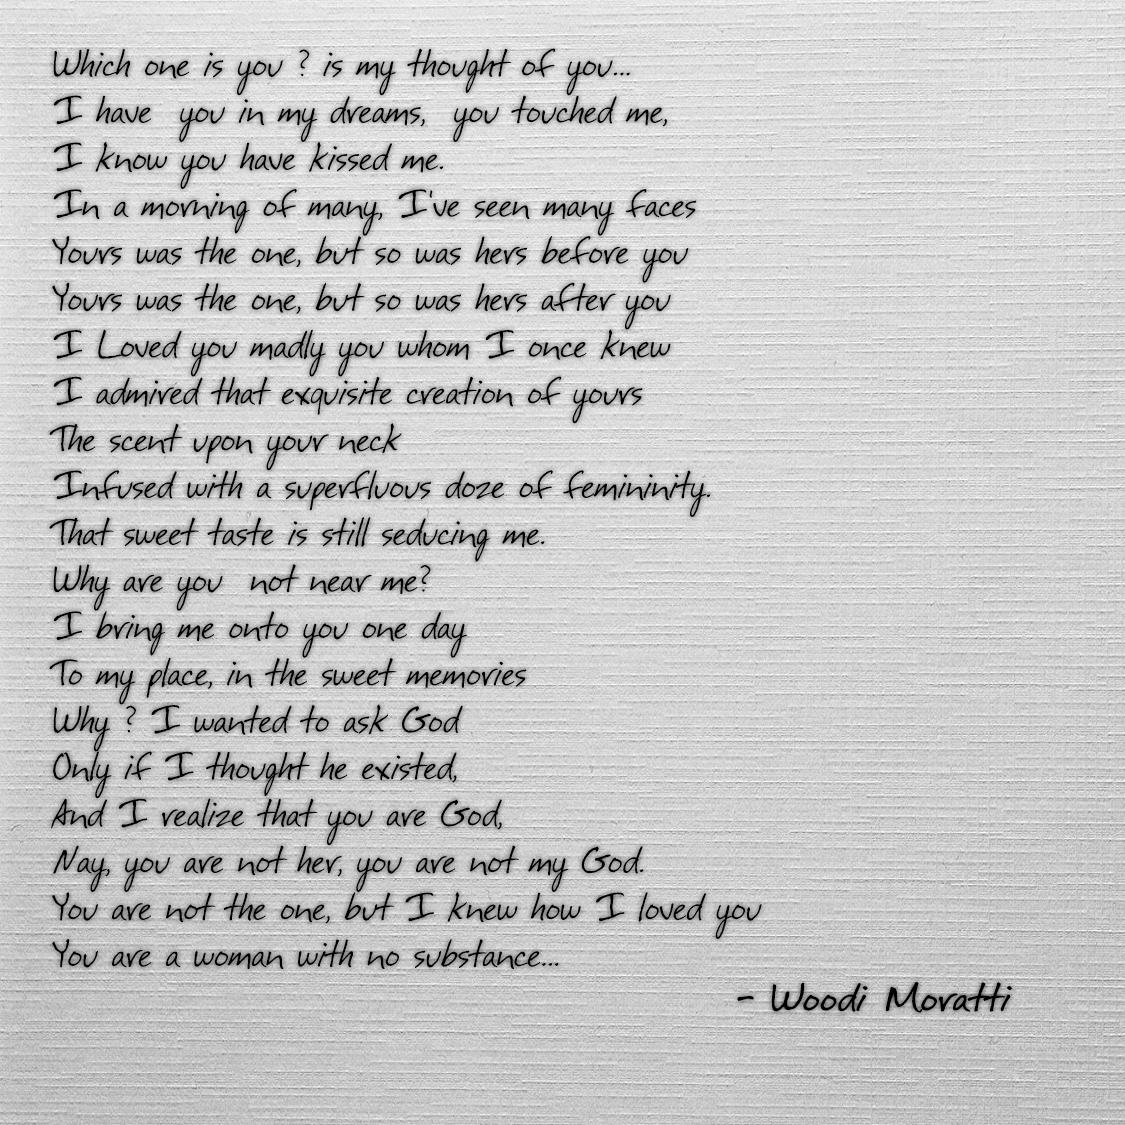 Which one is you ? is my thought of you...
I have you in my dreams, you touched me,
I know you have kissed me.
In a morning of many, I've seen many faces
Yours was the one, but so was hers before you
Yours was the one, but so was hers after you
I Loved you madly you whom I once knew
I admired that exquisite creation of yours
The scent upon your neck
Infused with a superfluous doze of femininity.
That sweet taste is still seducing me.
Why are you not near me?
I bring me onto you one day
To my place, in the sweet memories
Why ? I wanted to ask God
Only if I thought he existed,
And I realize that you are God,
Nay, you are not her, you are not my God.
You are not the one, but I knew how I loved you
You are a woman with no substance...
- Woodi Moratti